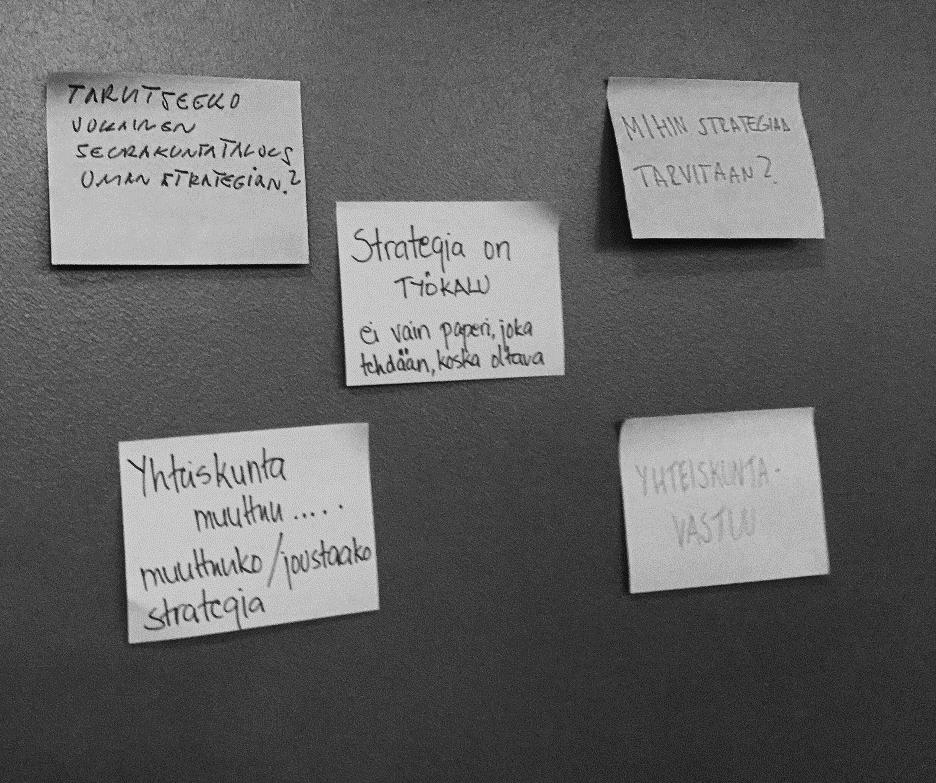 TARVITSEEKO
JOKAINEN
SEURAKUNTATALOUS
OMAN STRATEGIAN?
MIHIN STRATEGIAA
TARVITAAN?
Strategia on
TYÖKALU
ei vain paperi, joka
tehdään, koska oltava
Yhteiskunta
muuttuu.....
muuttuuko/joustaako
strategia
YHTEISKUNTA-
VASTUU